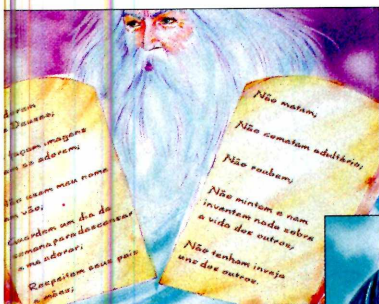 adoram
Deuses;
façam imagens
se adorem;
usem meu nome
vão;
Guardem um dia da
semana para descansar
a me adorar;
Respeitem seus pais
e mães;
Não matem;
Não cometam adultério;
Não roubem;
Não mintem e nam
inventem nada sobre
a vida dos outros;
Não tenham inveja
uns dos outros.